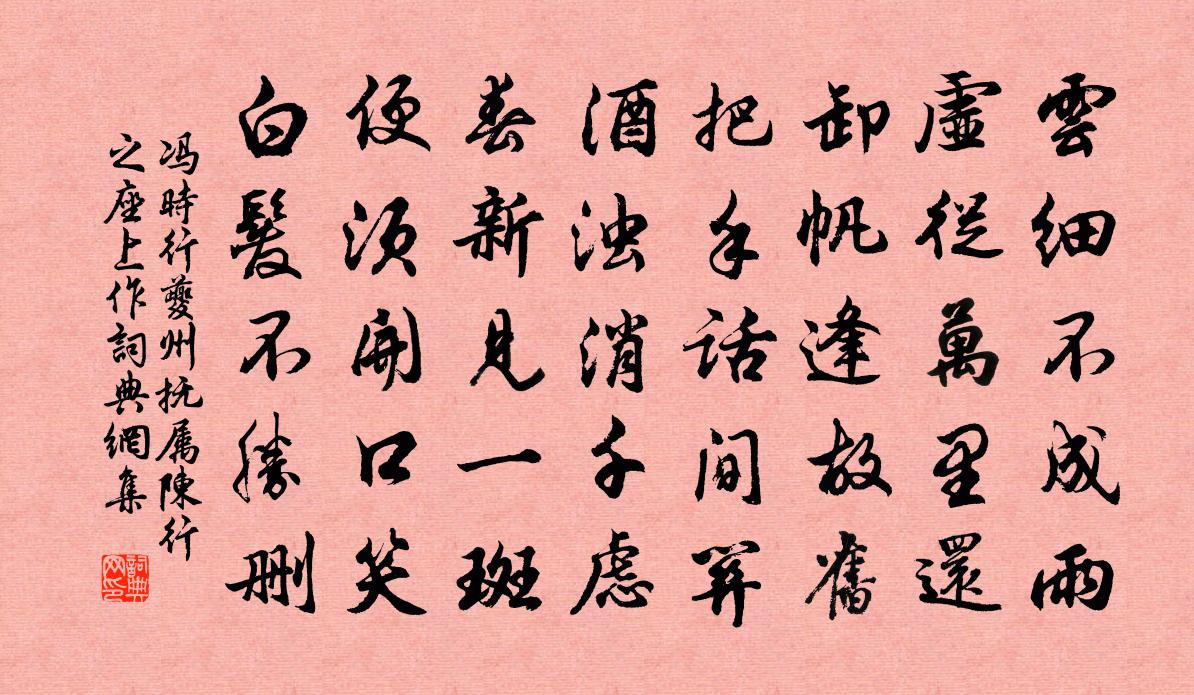 雲細不成雨
虛從萬里還
卸帆逢故舊
把手話間關
酒浊消千虑
春新見一斑
便須開口笑
白髮不勝刪
冯時行夔州抚属陳行
之座上作詞典網集
詞典网印